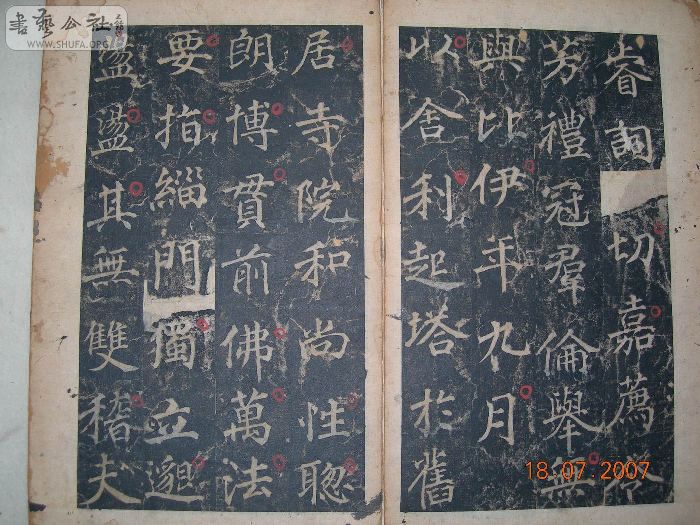 睿詞切嘉薦
芳禮冠羣倫舉無
與比伊年九月
以舍利起塔於舊
居寺院和尚性聰
朗博貫前佛萬法
要指緇門獨立邈
盪盪其無雙稽夫
書藝公社
WWW.SHUFA.ORG
18.07.2007